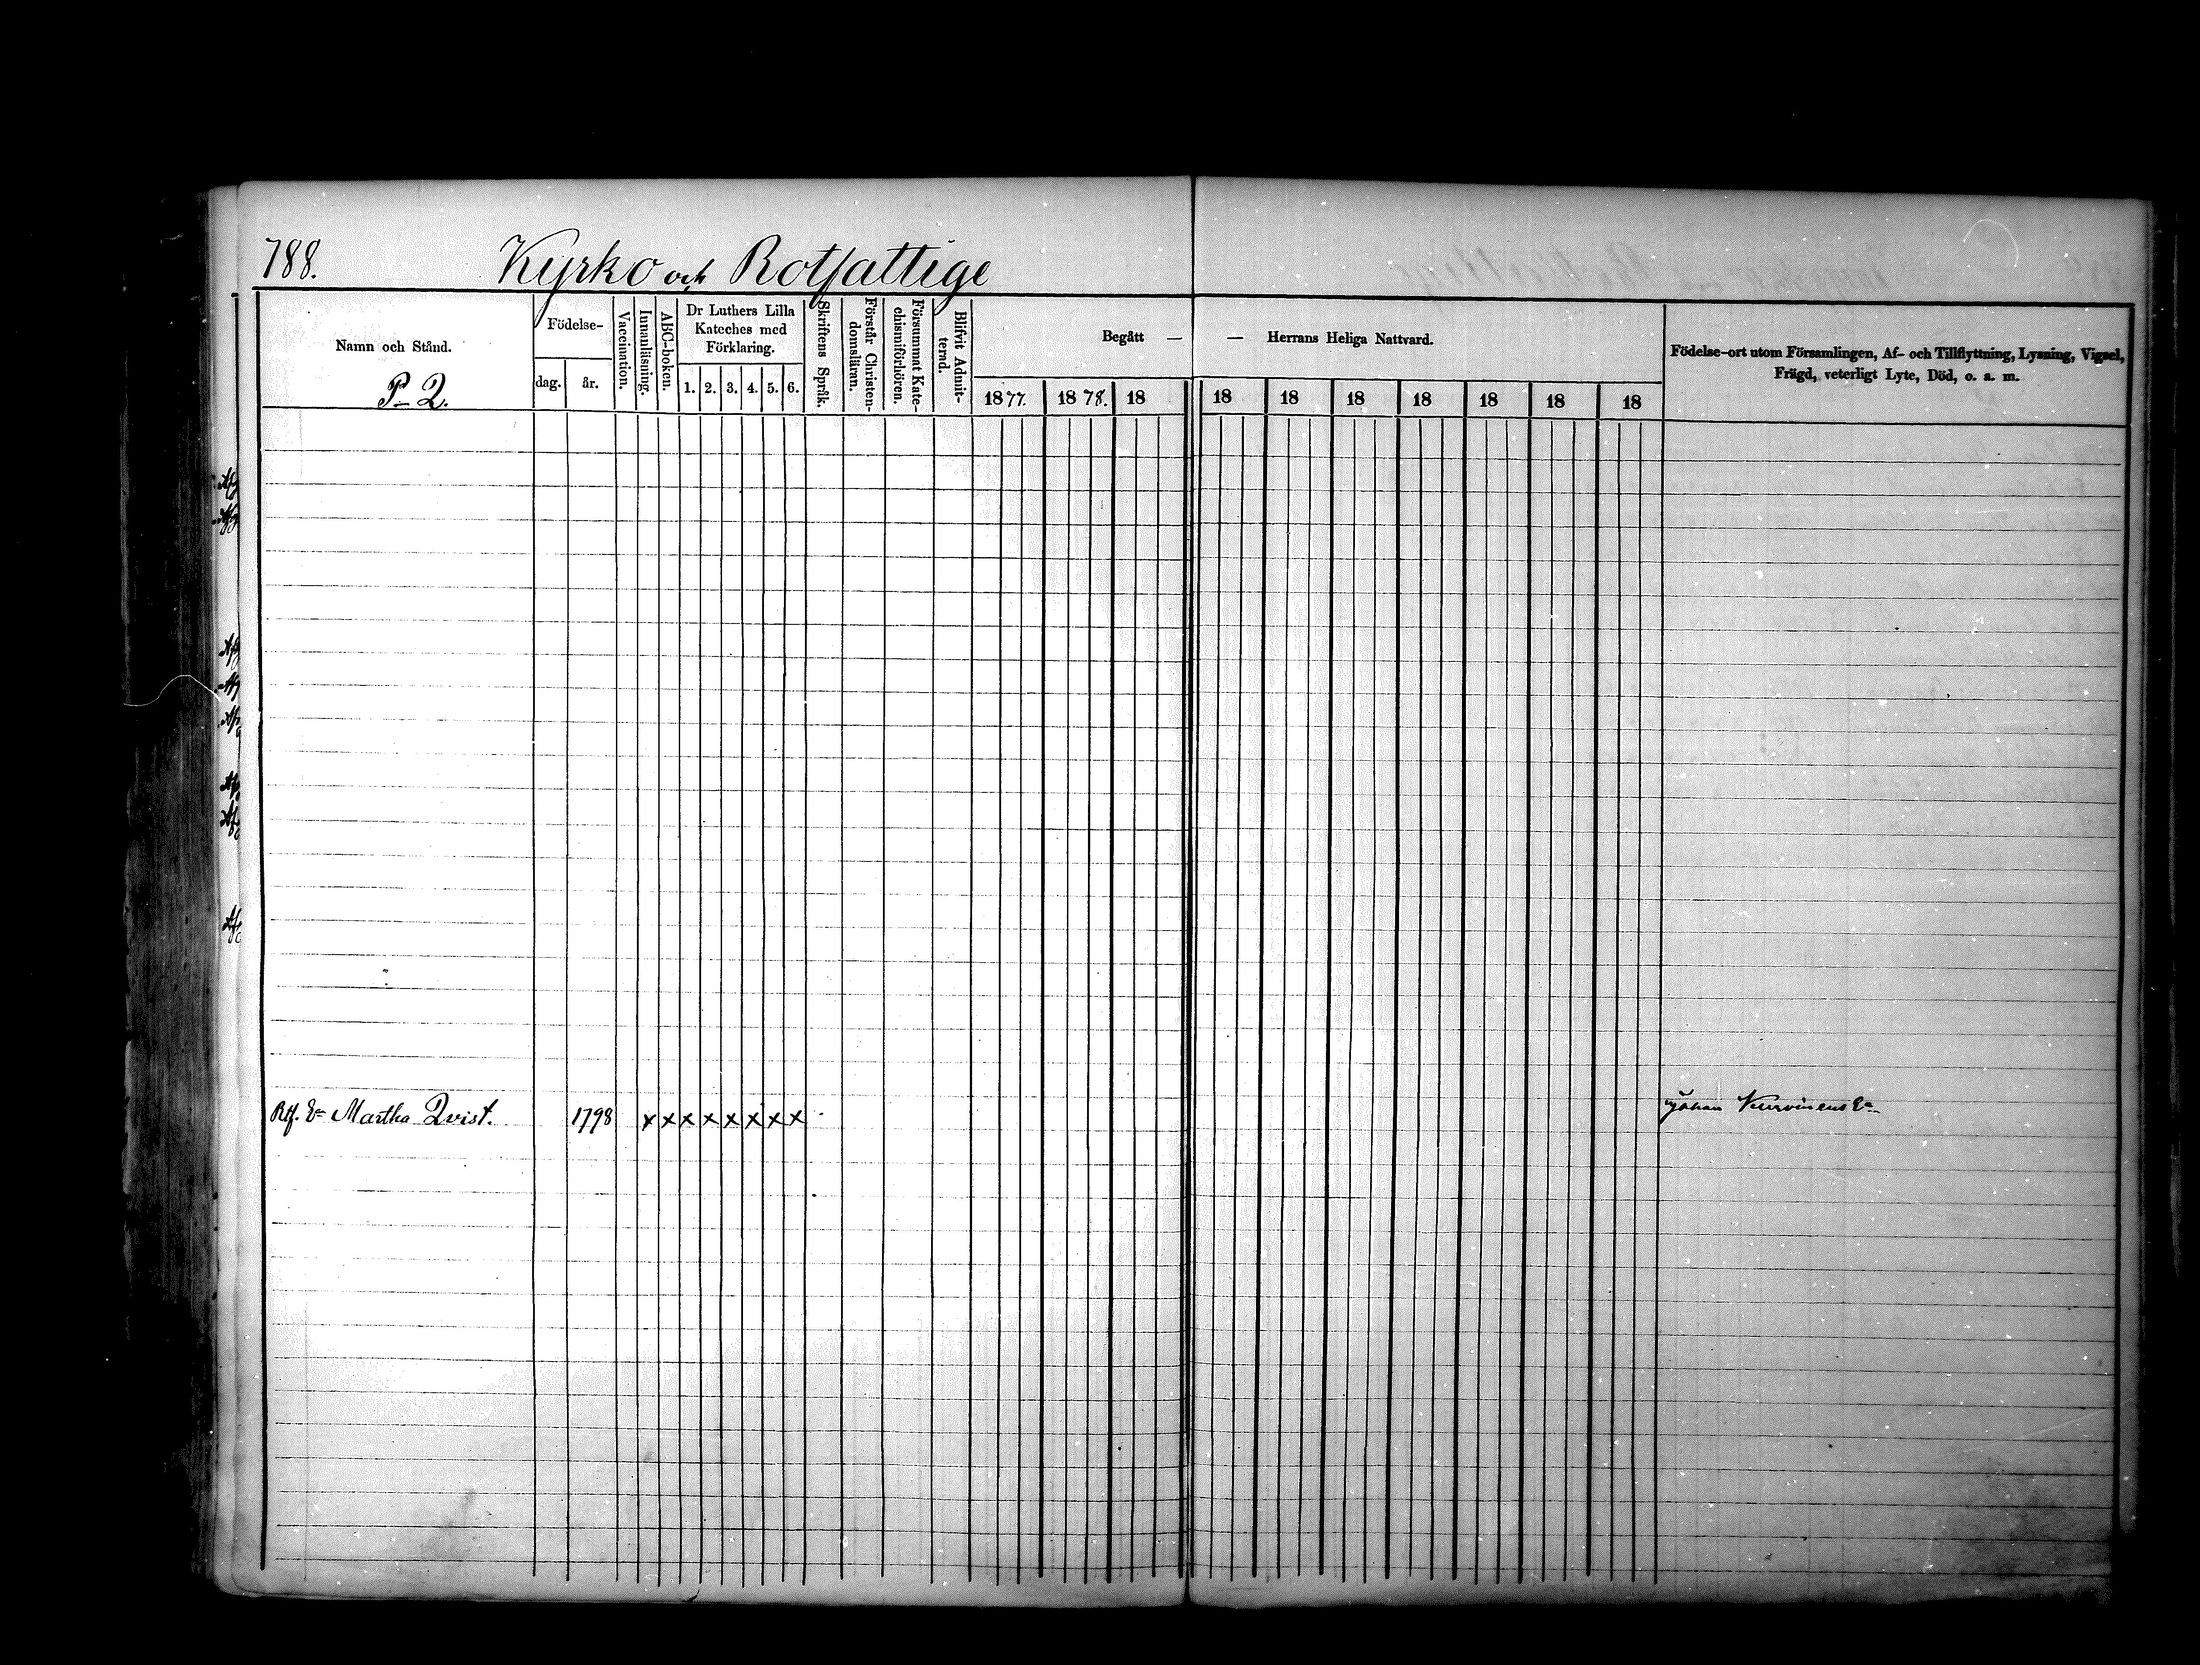 788. Kyrko och Rotfattige
Namn och Stånd.
P–Q.
Födelse-
dag. år.
Vaccination.
Innanläsning.
ABC-boken.
Dr Luthers Lilla
Kateches med
Förklaring.
1. 2. 3. 4. 5. 6.
Skriftens Språk.
Förstår Christen-
domsläran.
Försummat Kate-
chismiförhören.
Blifvit Admit-
terad.
Begått — — Herrans Heliga Nattvard.
1877. 1878. 18 18 18 18 18 18 18 18
Födelse-ort utom Församlingen, Af- och Tillflyttning, Lysning, Vigsel,
Frägd, veterligt Lyte, Död, o. a. m.
Rtf. Ea Martha Qvist. 1798 x x x x x x x x Johan Kurvinens Ea